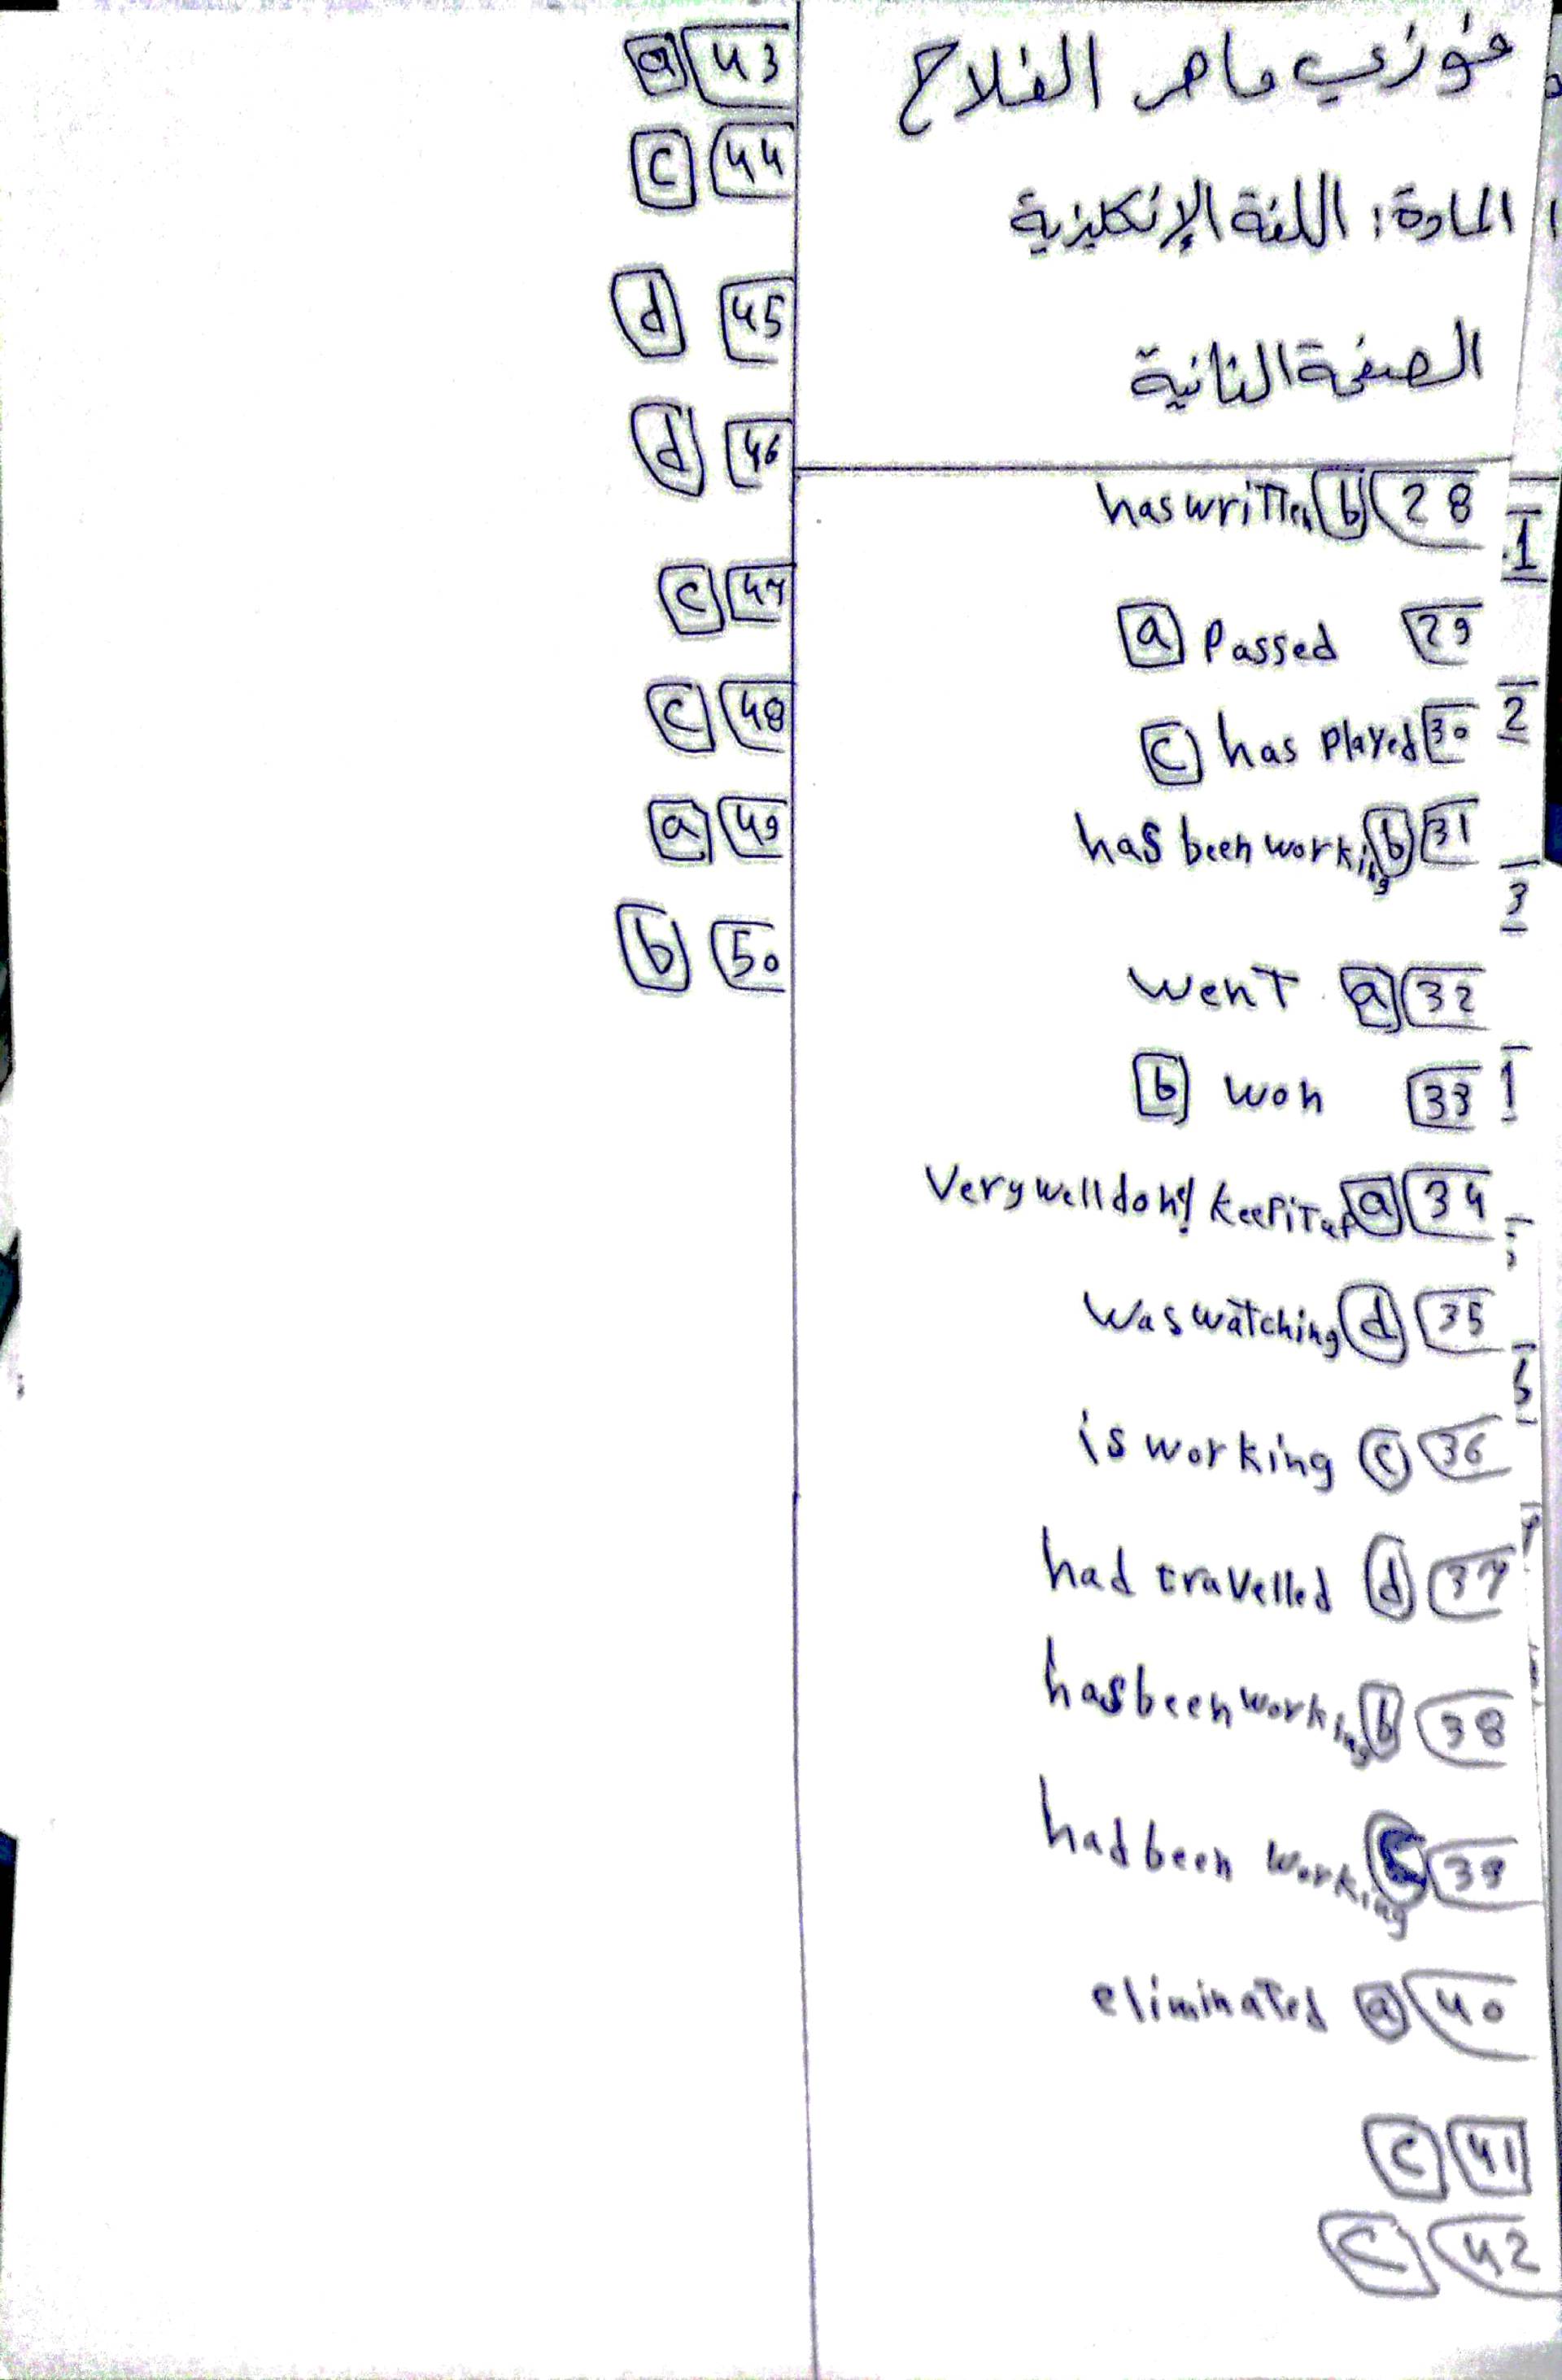 فوزي ماهر الفلاح
المادة: اللغة الإنكليزية
الصفحة الثانية
28 b has written
29 passed a
30 has played c
31 b has been working
32 a went
33 won b
34 a Very well done! keep it up
35 d was watching
36 c is working
37 d had travelled
38 b has been working
39 c had been working
40 a eliminated
41 c
42 c
43 a
44 c
45 d
46 d
47 c
48 c
49 a
50 b
1
2
3